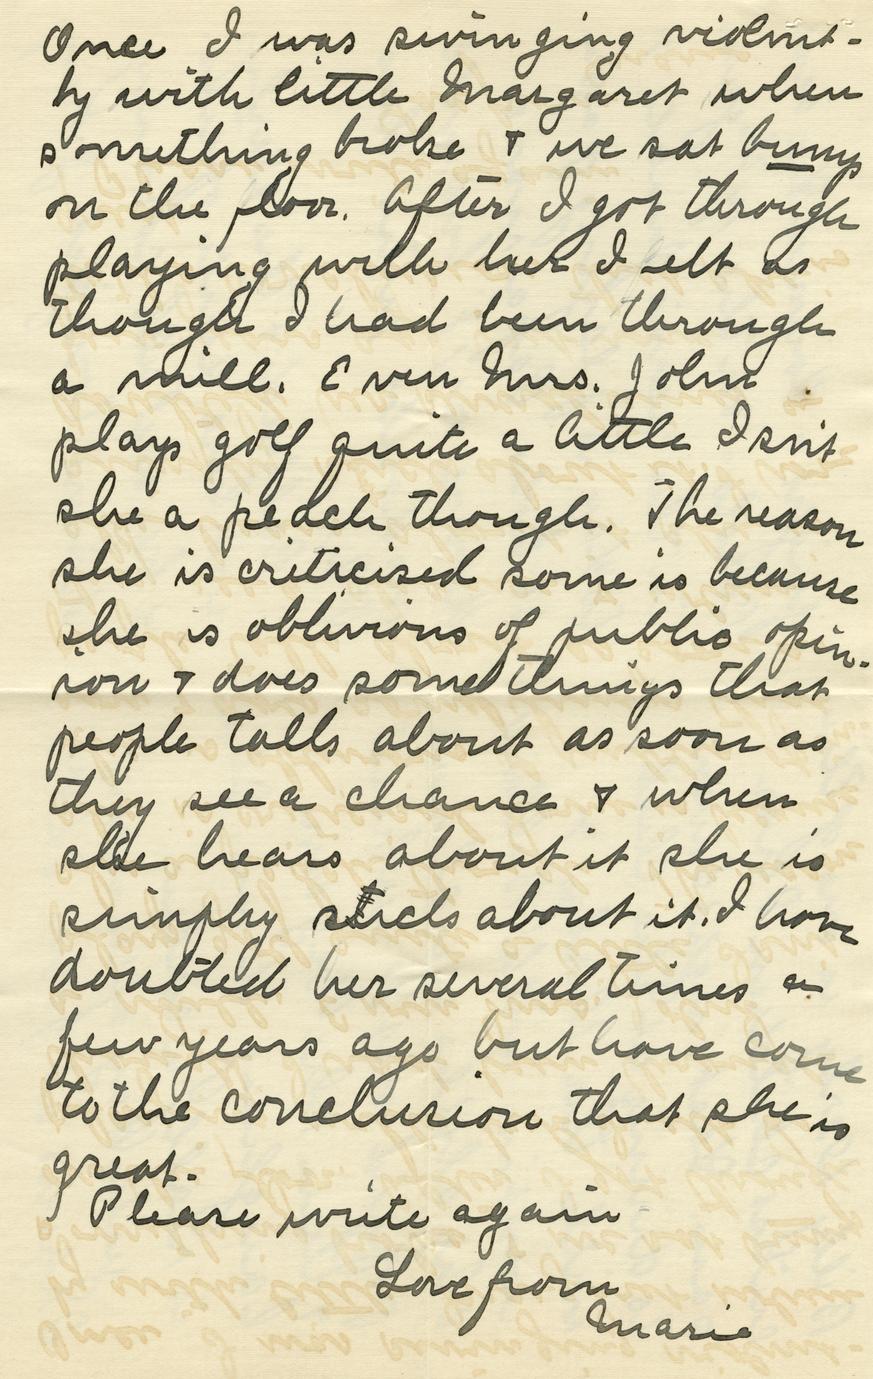 Once I was swinging violent-
ly with little Margaret when
something broke & we sat bump
on the floor. After I got through
playing with her I felt as
though I had been through
a mill. Even Mrs. John
plays golf quite a little Isn't
she a peach though. The reason
she is criticised some is because
she is oblivious of public opin-
ion & does some things that
people talk about as soon as
they see a chance & when
she hears about it she is
simply sick about it. I have
doubted her several times a
few years ago but have come
to the conclusion that she is
great.
Please write again
Love from
Marie